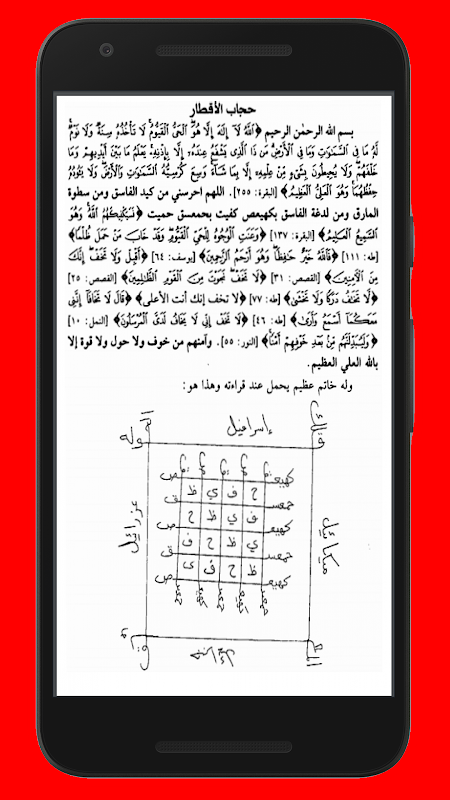 حجاب الأقطار
بسم الله الرحمن الرحيم ﴿ٱللَّهُ لَآ إِلَٰهَ إِلَّا هُوَ ٱلْحَىُّ ٱلْقَيُّومُ لَا تَأْخُذُهُۥ سِنَةٌ وَلَا نَوْمٌ
لَّهُۥ مَا فِى ٱلسَّمَٰوَٰتِ وَمَا فِى ٱلْأَرْضِ مَن ذَا ٱلَّذِى يَشْفَعُ عِندَهُۥٓ إِلَّا بِإِذْنِهِۦ يَعْلَمُ مَا بَيْنَ أَيْدِيهِمْ وَمَا
خَلْفَهُمْ وَلَا يُحِيطُونَ بِشَىْءٍ مِّنْ عِلْمِهِۦٓ إِلَّا بِمَا شَآءَ وَسِعَ كُرْسِيُّهُ ٱلسَّمَٰوَٰتِ وَٱلْأَرْضَ وَلَا يَـُٔودُهُۥ
حِفْظُهُمَا وَهُوَ ٱلْعَلِىُّ ٱلْعَظِيمُ﴾ [البقرة: ٢٥٥]. اللهم احرسني من كيد الفاسق ومن سطوة
المارق ومن لدغة الفاسق بكهيعص كفيت بحمعسق حميت ﴿فَسَيَكْفِيكَهُمُ ٱللَّهُ وَهُوَ
ٱلسَّمِيعُ ٱلْعَلِيمُ﴾ [البقرة: ١٣٧] ﴿وَعَنَتِ ٱلْوُجُوهُ لِلْحَىِّ ٱلْقَيُّومِ وَقَدْ خَابَ مَنْ حَمَلَ ظُلْمًا﴾
[طه: ١١١] ﴿فَٱللَّهُ خَيْرٌ حَٰفِظًا وَهُوَ أَرْحَمُ ٱلرَّٰحِمِينَ﴾ [يوسف: ٦٤] ﴿أَقْبِلْ وَلَا تَخَفْ إِنَّكَ
مِنَ ٱلْءَامِنِينَ﴾ [القصص: ٣١] ﴿لَا تَخَفْ نَجَوْتَ مِنَ ٱلْقَوْمِ ٱلظَّٰلِمِينَ﴾ [القصص: ٢٥]
﴿لَّا تَخَٰفُ دَرَكًا وَلَا تَخْشَىٰ﴾ [طه: ٧٧] ﴿لا تخف إنك أنت الأعلى﴾ ﴿قَالَ لَا تَخَافَآ إِنَّنِى
مَعَكُمَآ أَسْمَعُ وَأَرَىٰ﴾ [طه: ٤٦] ﴿لَا تَخَفْ إِنِّى لَا يَخَافُ لَدَىَّ ٱلْمُرْسَلُونَ﴾ [النمل: ١٠]
﴿وَلَيُبَدِّلَنَّهُم مِّنۢ بَعْدِ خَوْفِهِمْ أَمْنًا﴾ [النور: ٥٥]. وآمنهم من خوف ولا حول ولا قوة إلا
بالله العلي العظيم.
وله خاتم عظيم يحمل عند قراءته وهذا هو:
إسرافيل
وله
كهيعـ ص
ح ف ي ظ
حمعسـ ق
ف ي ظ ح
كهيعـ ص
ي ظ ح ف
حمعسـ ق
ظ ح ف ى
كهيعـ ص
ميكائيل
عزرائيل